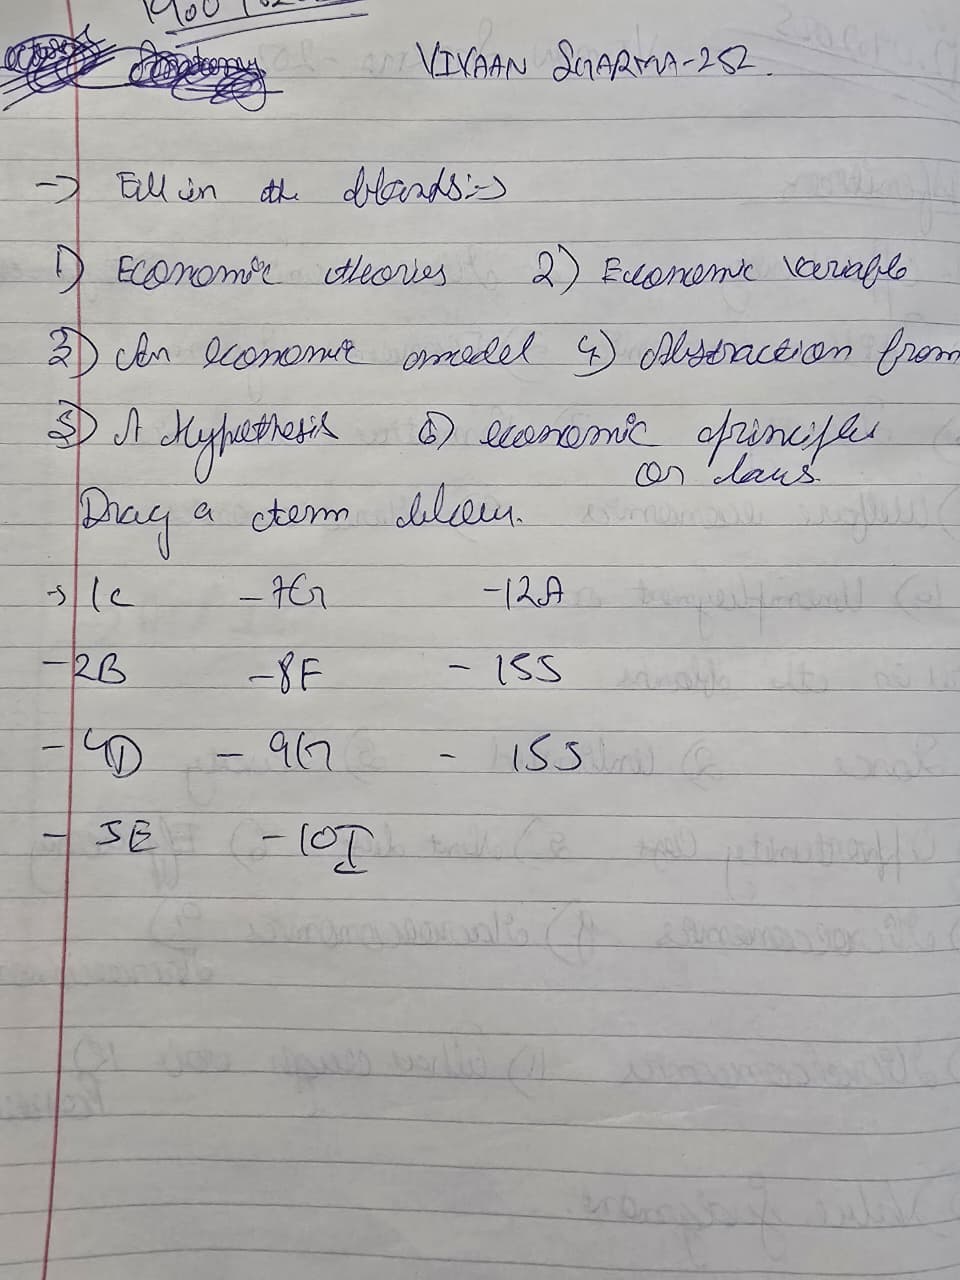 VIVAAN SHARMA-252.
-> Fill in the blands:->
1) Economic theories 2) Economic variable
3) An economic model 4) Abstraction from
5) A Hypothesis 6) economic principles
or laws.
Drag a term below.
-> 1c -7G -12A
-2B -8F - 15S
- 4D - 9G - 15S
- 5E -10I